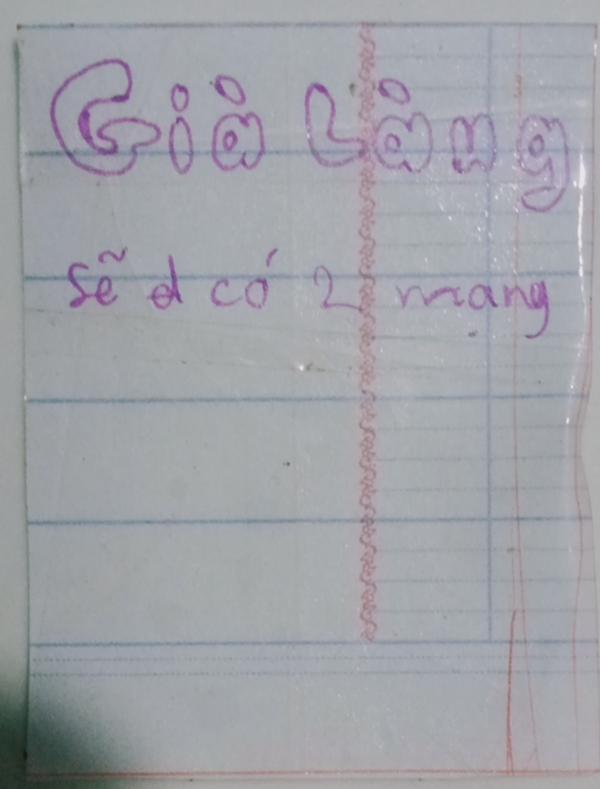 Già Làng
sẽ đ có 2 mạng